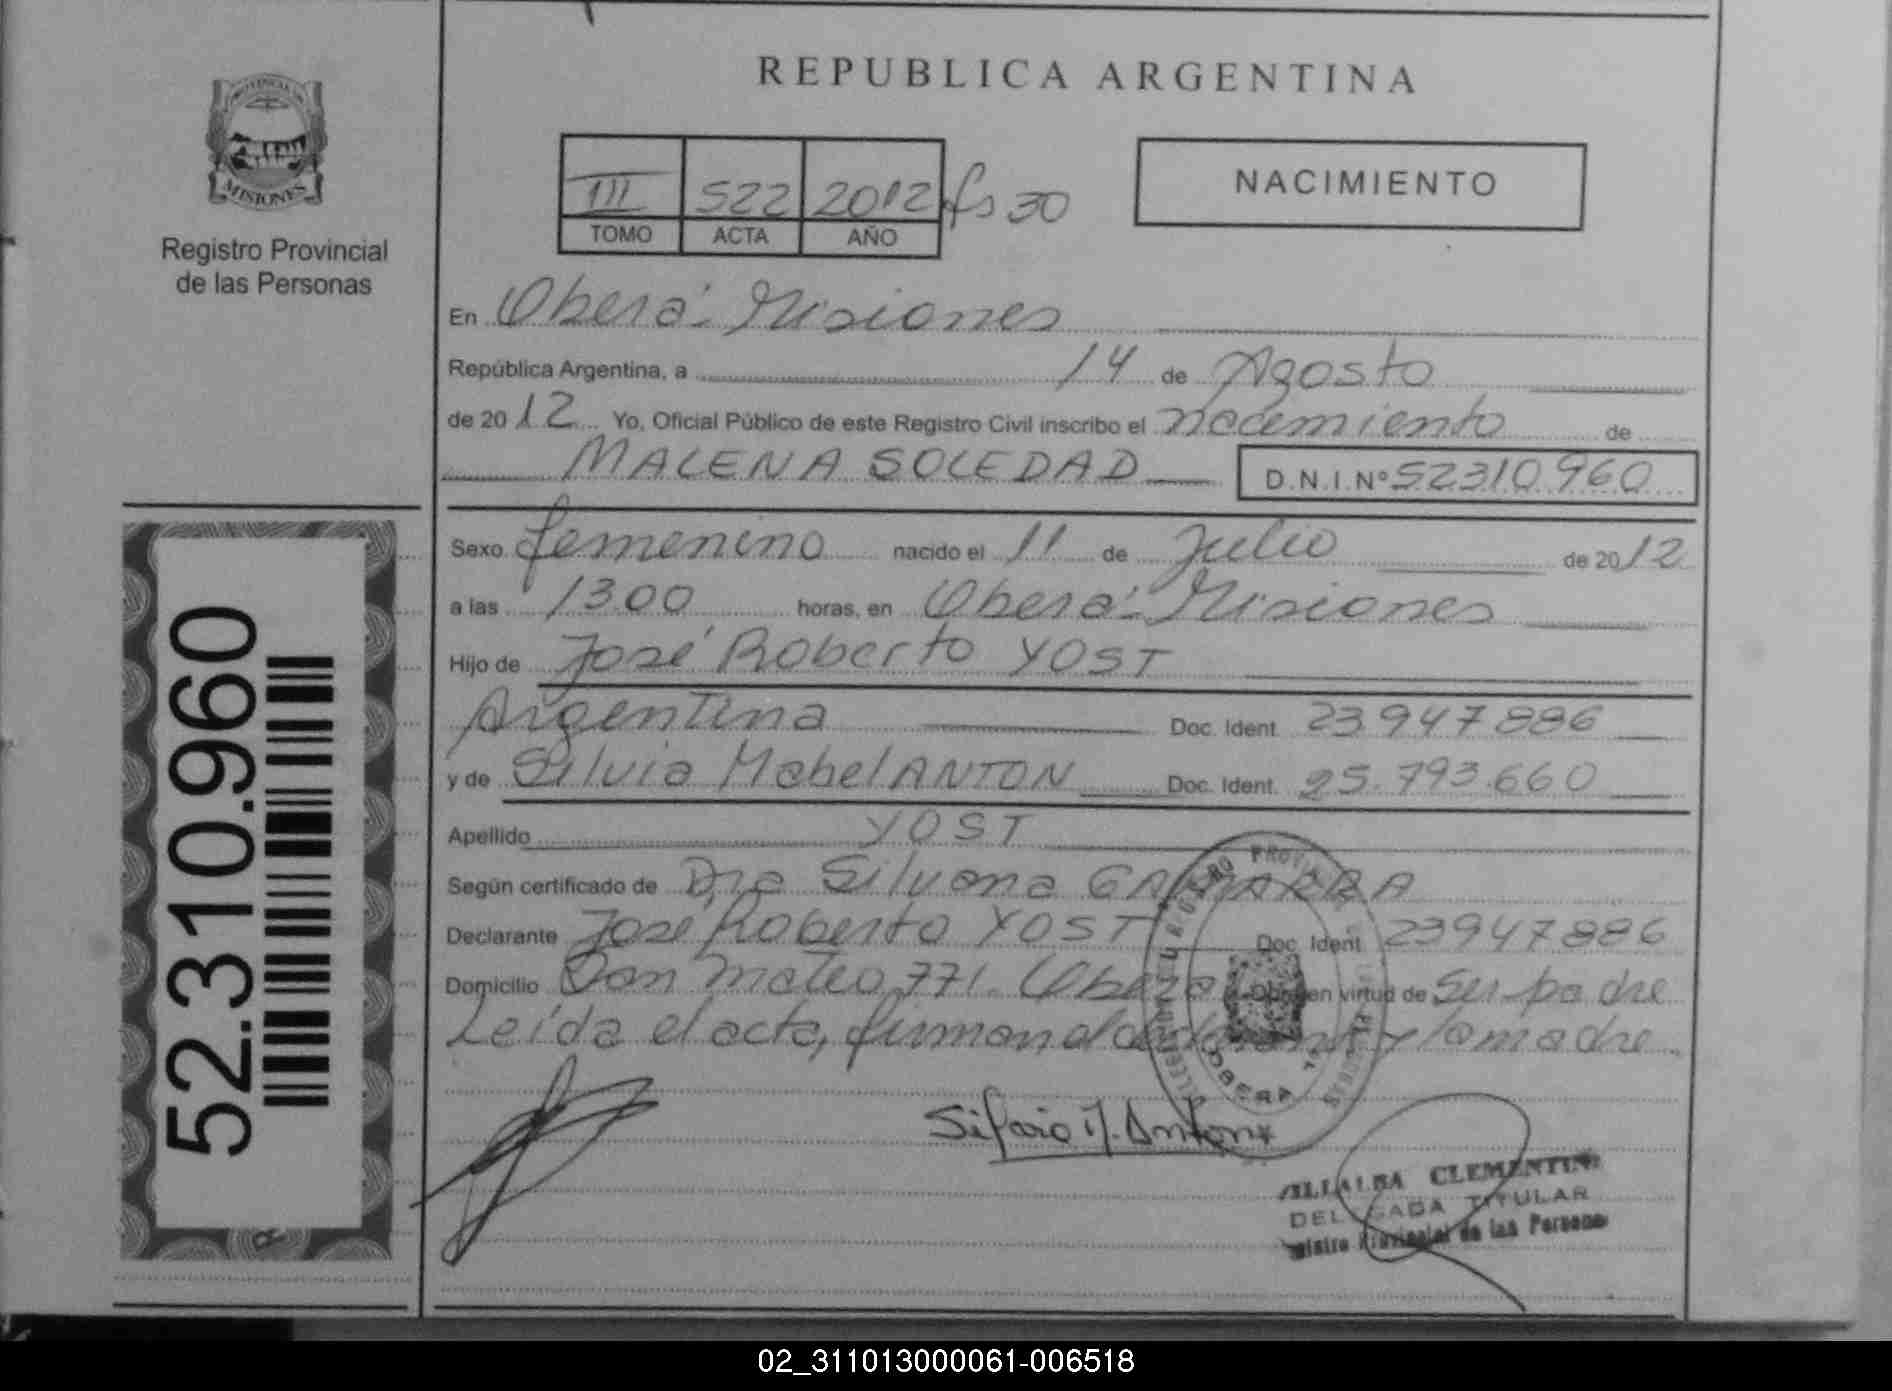 REPUBLICA ARGENTINA
PROVINCIA DE
MISIONES
Registro Provincial
de las Personas
III 522 2012 fs 30
TOMO ACTA AÑO
NACIMIENTO
En Oberá - Misiones
República Argentina, a 14 de Agosto
de 2012 Yo, Oficial Público de este Registro Civil inscribo el nacimiento de
MALENA SOLEDAD D.N.I.Nº 52310960
Sexo femenino nacido el 11 de Julio de 2012
a las 13.00 horas, en Oberá - Misiones
Hijo de José Roberto YOST
Argentina Doc. Ident. 23947886
y de Silvia Mabel ANTON Doc. Ident. 25.793.660
Apellido YOST
Según certificado de Dra Silvana GAMARRA
Declarante José Roberto YOST Doc. Ident. 23947886
Domicilio Don Mateo 771. Oberá Obra en virtud de ser padre
Leída el acta, firman y la madre
52.310.960
OBERA
VILLALBA CLEMENTINA
DELEGADA TITULAR
Registro Provincial de las Personas
02_311013000061-006518